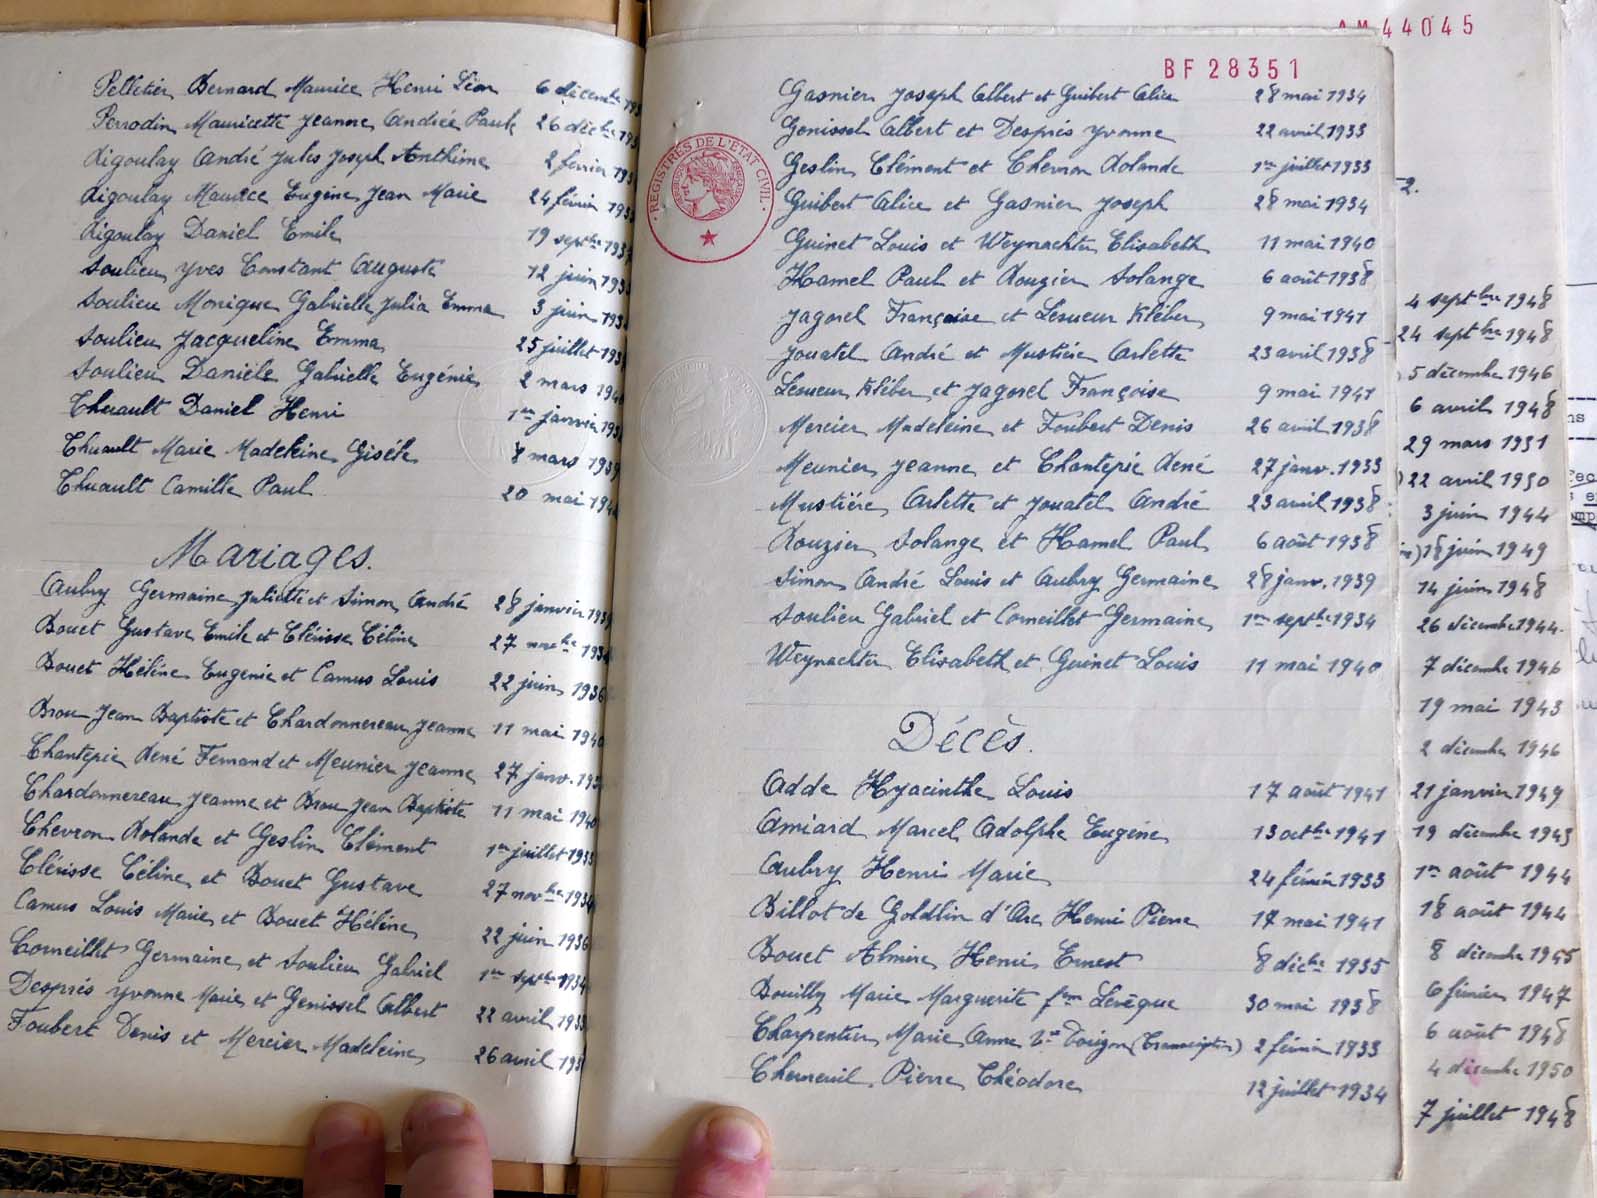 Pelletier Bernard Maurice Henri Léon 6 décembre 193
Perrodin Mauricette Jeanne Andrée Paule 26 décbre 193
Rigoulay André Jules Joseph Anthime 2 février 193
Rigoulay Maurice Eugène Jean Marie 24 février 193
Rigoulay Daniel Emile 19 septbre 193
Soulieu Yves Constant Auguste 12 juin 193
Soulieu Monique Gabrielle Julia Emma 3 juin 193
Soulieu Jacqueline Emma 25 juillet 193
Soulieu Danièle Gabrielle Eugénie 2 mars 194
Thuault Daniel Henri 1er janvier 193
Thuault Marie Madeleine Gisèle 8 mars 1939
Thuault Camille Paul 20 mai 194
Mariages.
Aubry Germaine Juliette et Simon André 28 janvier 1939
Bouet Gustave Emile et Clérisse Céline 27 novbre 1934
Bouet Hélène Eugenie et Camus Louis 22 juin 1936
Brou Jean Baptiste et Chardonnereau Jeanne 11 mai 1940
Chantepie René Fernand et Meunier Jeanne 27 janv. 193
Chardonnereau Jeanne et Brou Jean Baptiste 11 mai 1940
Chevron Rolande et Geslin Clément 1er juillet 1933
Clérisse Céline et Bouet Gustave 27 novbre 1934
Camus Louis Marie et Bouet Hélène 22 juin 1936
Corneillet Germaine et Soulieu Gabriel 1er septbre 1934
Després Yvonne Marie et Genissel Albert 22 avril 1933
Foubert Denis et Mercier Madeleine 26 avril 193
44045
BF 28351
REGISTRES DE L'ÉTAT CIVIL
Gasnier Joseph Albert et Guibert Alice 28 mai 1934
Genissel Albert et Després Yvonne 22 avril 1933
Geslin Clément et Chevron Rolande 1er juillet 1933
Guibert Alice et Gasnier Joseph 28 mai 1934
Guinet Louis et Weynachter Elisabeth 11 mai 1940
Hamel Paul et Rouzier Solange 6 août 1938
Jagorel Françoise et Lesueur Kléber 9 mai 1941
Jouatel André et Mustière Arlette 23 avril 1938
Lesueur Kléber et Jagorel Françoise 9 mai 1941
Mercier Madeleine et Foubert Denis 26 avril 1938
Meunier Jeanne et Chantepie René 27 janv. 1933
Mustière Arlette et Jouatel André 23 avril 1938
Rouzier Solange et Hamel Paul 6 août 1938
Simon André Louis et Aubry Germaine 28 janv. 1939
Soulieu Gabriel et Corneillet Germaine 1er septbre 1934
Weynachter Elisabeth et Guinet Louis 11 mai 1940
Décès.
Adde Hyacinthe Louis 17 août 1941
Amiard Marcel Adolphe Eugène 13 octbre 1941
Aubry Henri Marie 24 février 1933
Billot de Goldlin d'Arc Henri Pierre 17 mai 1941
Bouet Almire Henri Ernest 8 décbre 1935
Bouilly Marie Marguerite fem Levêque 30 mai 1938
Charpentier Marie Anne Vve (Transcription) 2 février 1933
Cherneuil Pierre Théodore 12 juillet 1934
2.
4 septbre 1948
24 septbre 1948
5 décembre 1946
6 avril 1948
29 mars 1931
22 avril 1950
3 juin 1944
18 juin 1949
14 juin 1948
26 décembre 1944.
7 décembre 1946
19 mai 1943
2 décembre 1946
21 janvier 1949
19 décembre 1943
1er août 1944
18 août 1944
8 décembre 1945
6 février 1947
6 août 1948
4 décembre 1950
7 juillet 1948